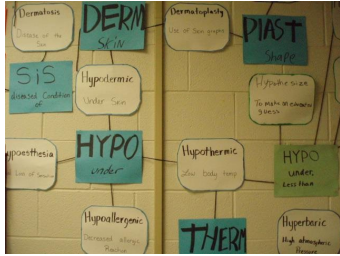 Dermatosis
Disease of the
DERM
SKIN
Dermatoplasty
Use of Skin grafts
PLAST
Shape
SiS
diseased Condition
of
Hypodermic
Under Skin
Hypothesize
To make an educated
guess
Hypoesthesia
Loss of Sensation
HYPO
under
Hypothermic
low body temp
HYPO
under,
Less than
Hypoallergenic
Decreased allergic
Reaction
THERM
Hyperbaric
High atmospheric
Pressure